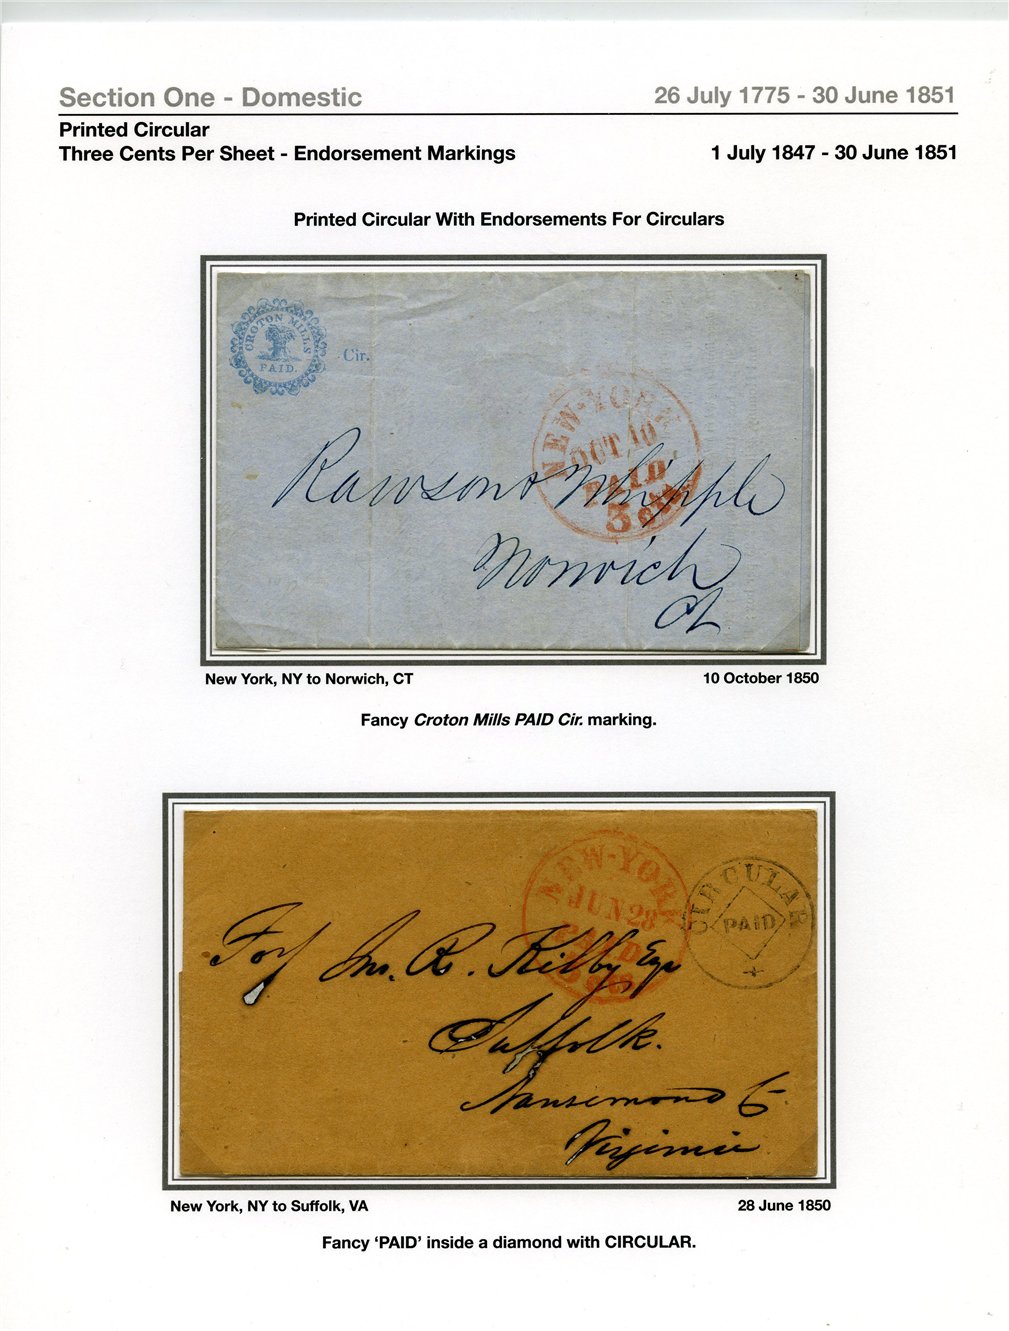 Section One - Domestic
26 July 1775 - 30 June 1851
Printed Circular
Three Cents Per Sheet - Endorsement Markings
1 July 1847 - 30 June 1851
Printed Circular With Endorsements For Circulars
CROTON MILLS
PAID.
Cir.
NEW-YORK
OCT 10
PAID
3 cts
Rawson & Whipple
Norwich
Ct
New York, NY to Norwich, CT
10 October 1850
Fancy Croton Mills PAID Cir. marking.
NEW-YORK
JUN 28
PAID
3 cts
CIRCULAR
PAID
For
Jno. R. Kilby Esqr
Suffolk.
Nansemond Co
Virginia
New York, NY to Suffolk, VA
28 June 1850
Fancy ‘PAID’ inside a diamond with CIRCULAR.